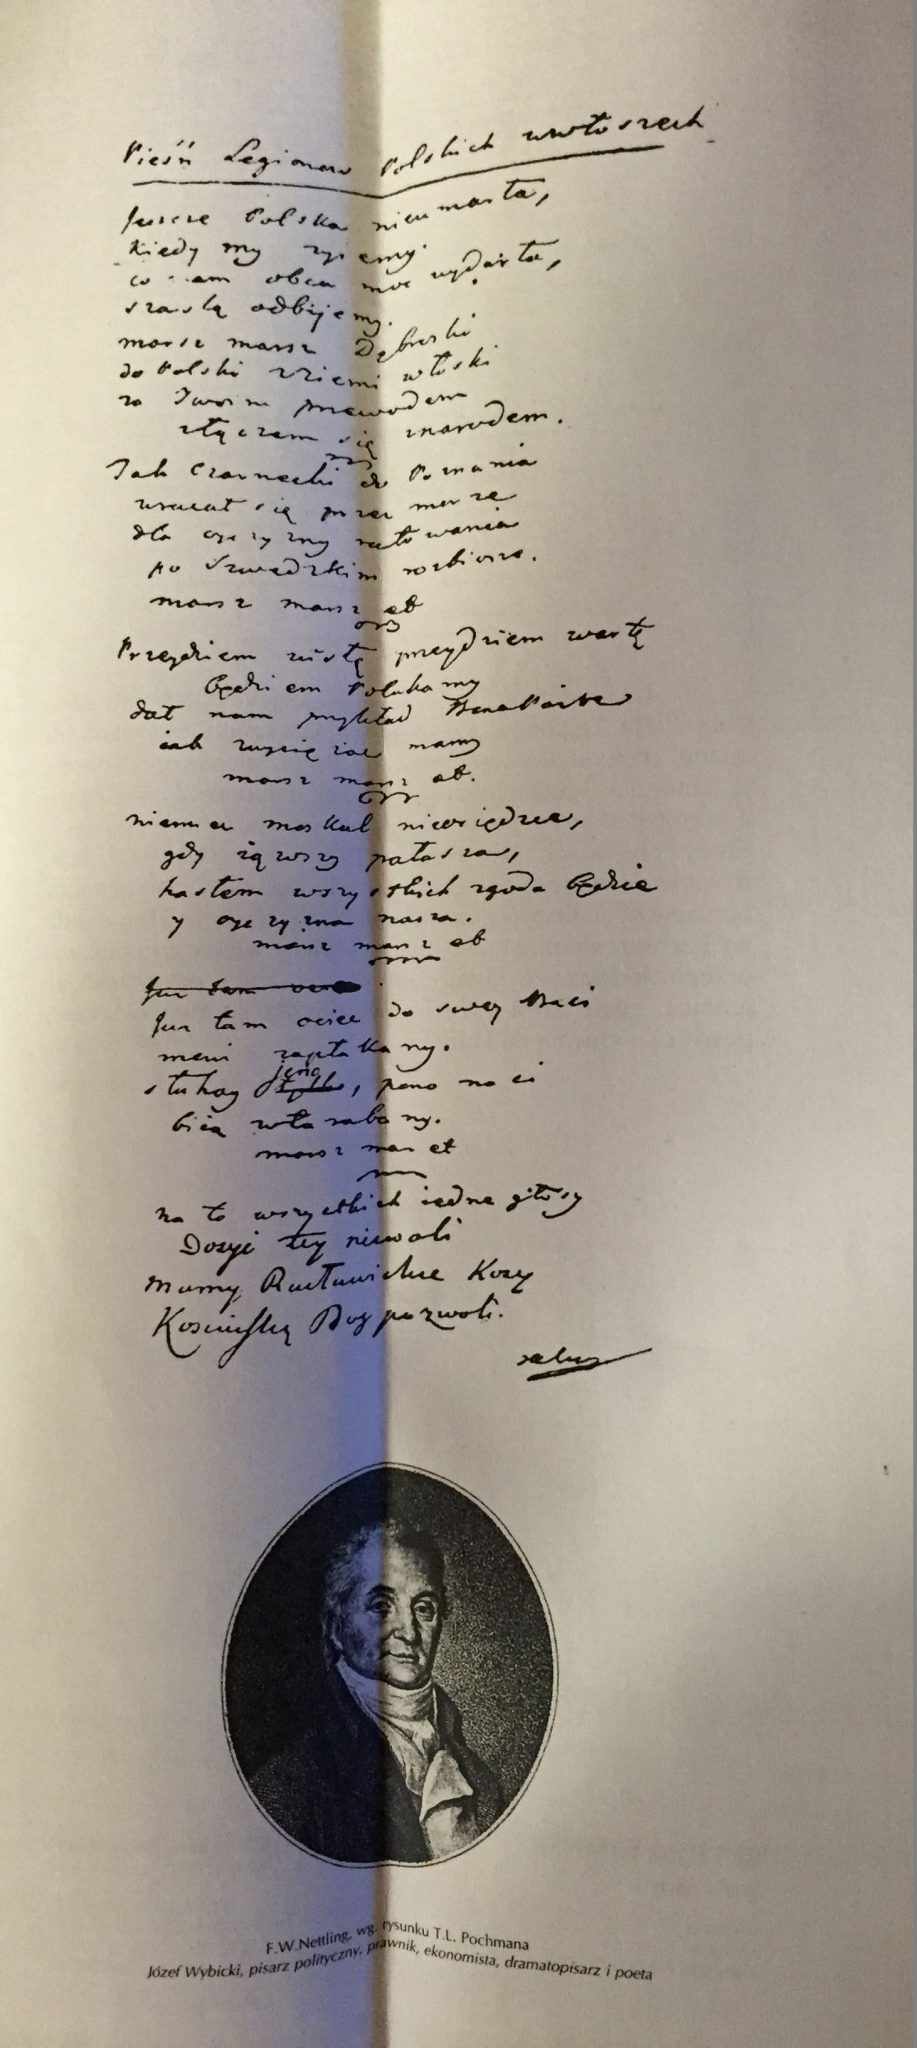 Pieśń Legionow Polskich wewłoszech
Jeszcze Polska nieumarła,
kiedy my żyiemy.
co nam obca moc wydarła,
szablą odbijemy.
marsz marsz Dąbroski
do Polski zziemi włoski
za Twoim przewodem
złączem się znarodem.
Jak Czarnecki do Poznania
wracał się przez morze
dla oyczyzny ratowania
po Szwedzkim rozbiorze.
marsz marsz et
Przeydziem wisłę przeydziem wartę
będziem Polakamy
dał nam przykład Bonaparte
iak zwyciężac mamy
marsz marsz et.
niemiec moskal nieosiędzie,
gdy iąwszy pałasza,
hasłem wszystkich zgoda będzie
y oyczyzna nasza.
marsz marsz et
Już tam
Już tam ociec do swey Basi
mówi zapłakany.
słuchay jeno tylko, pono nasi
biią wtarabany.
marsz mar et
na to wszystkich iedne głosy
Dosyć tey niewoli
Mamy Racławickie Kosy
Kosciuszkę Bog pozwoli.
F.W.Nettling, wg. rysunku T.L. Pochmana
Józef Wybicki, pisarz polityczny, prawnik, ekonomista, dramatopisarz i poeta